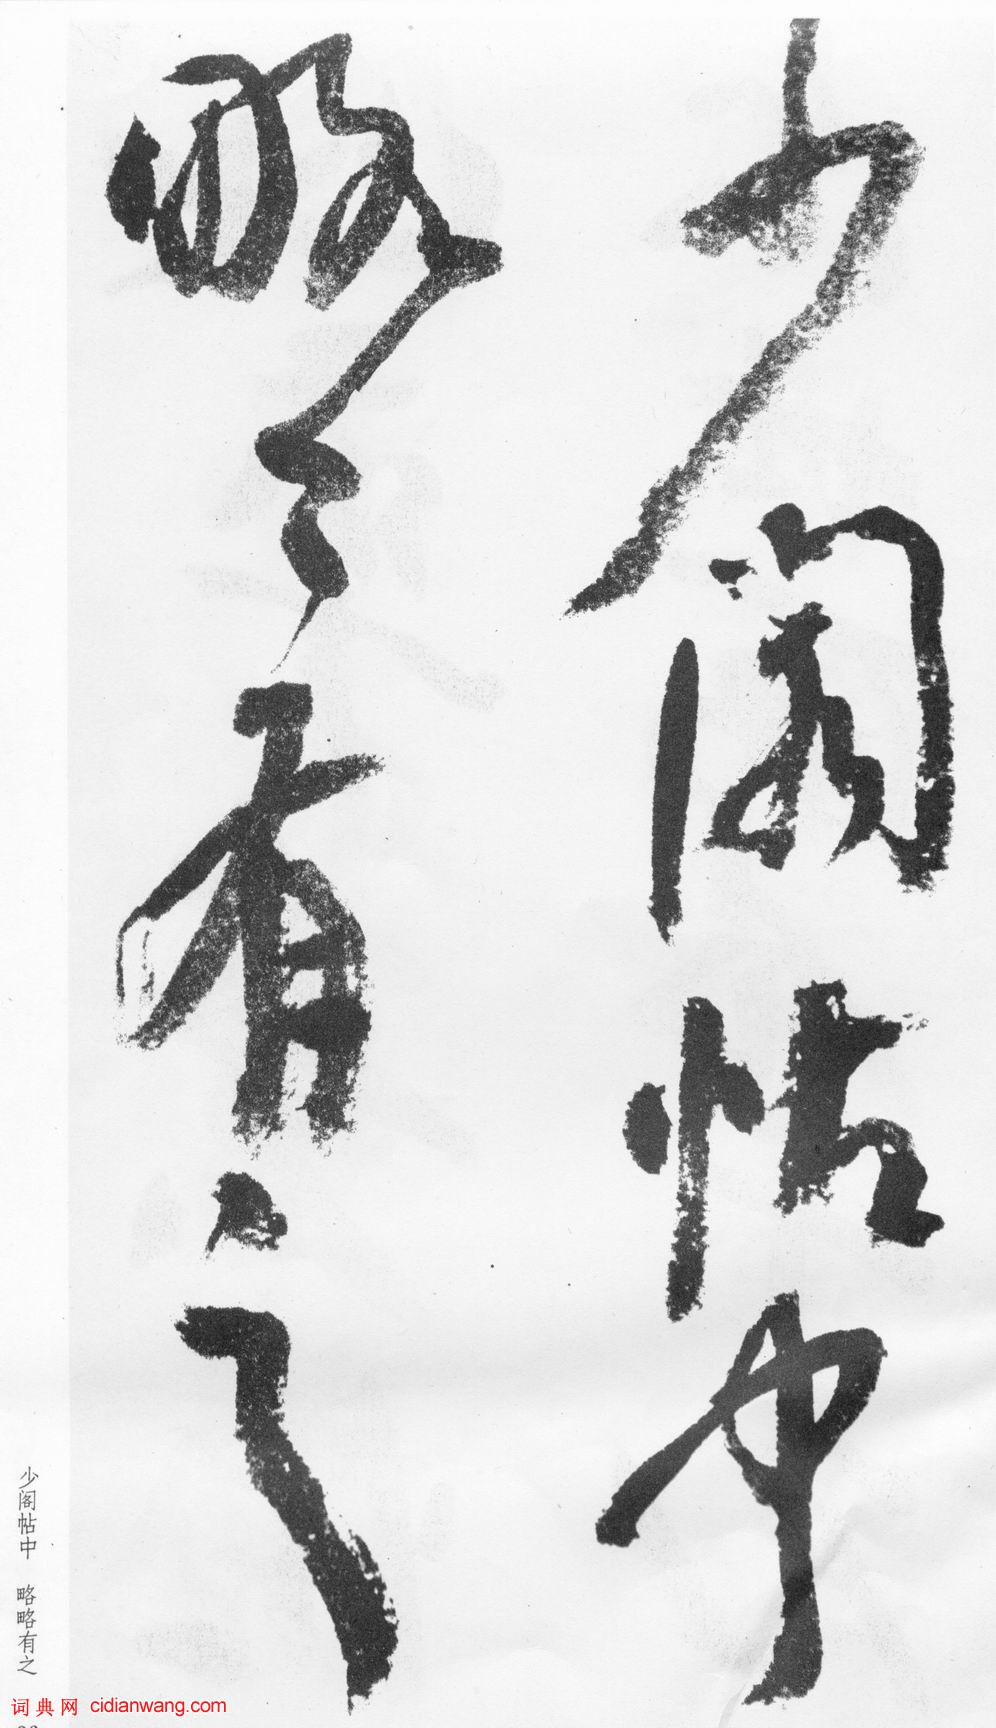 少阁帖中
略〻有之
少阁帖中　略略有之
词典网 cidianwang.com